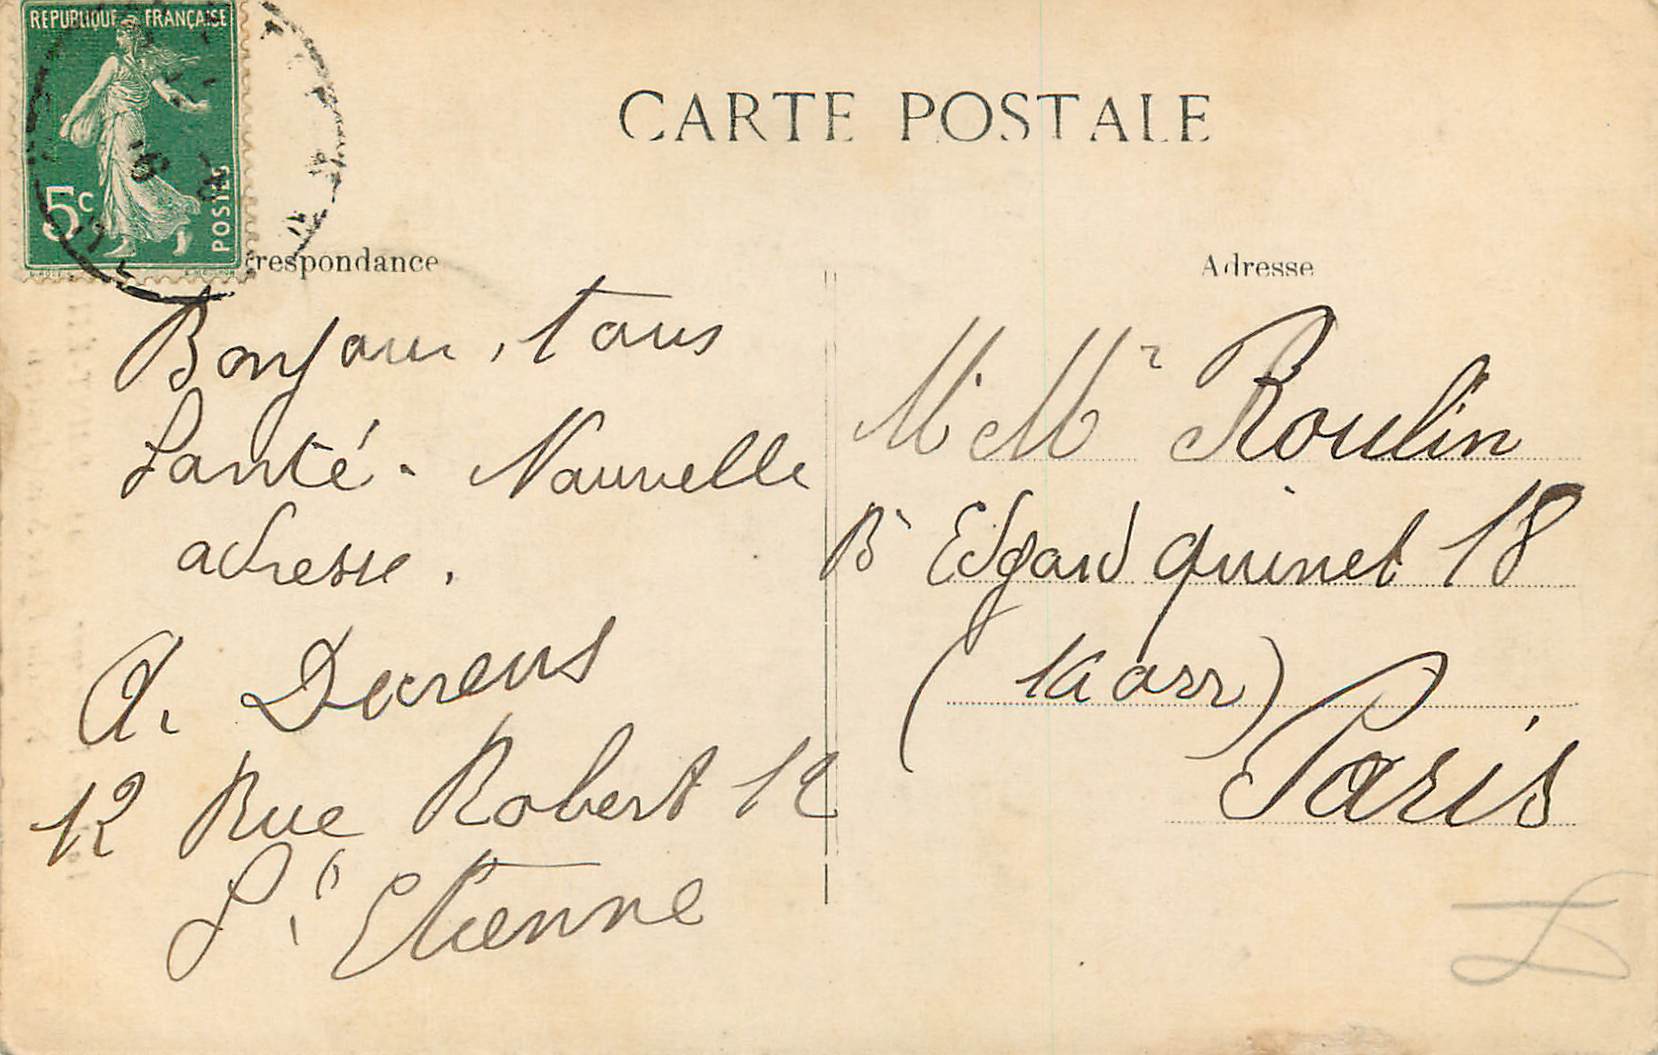 REPUBLIQUE FRANÇAISE
5c
POSTES
CARTE POSTALE
respondance
Bonjour, tous
Santé - Nouvelle
adresse.
A. Decreus
12 Rue Robert 12
St Etienne
Adresse
M. Mr Roulin
Bd Edgard Quinet 18
arr)
Paris